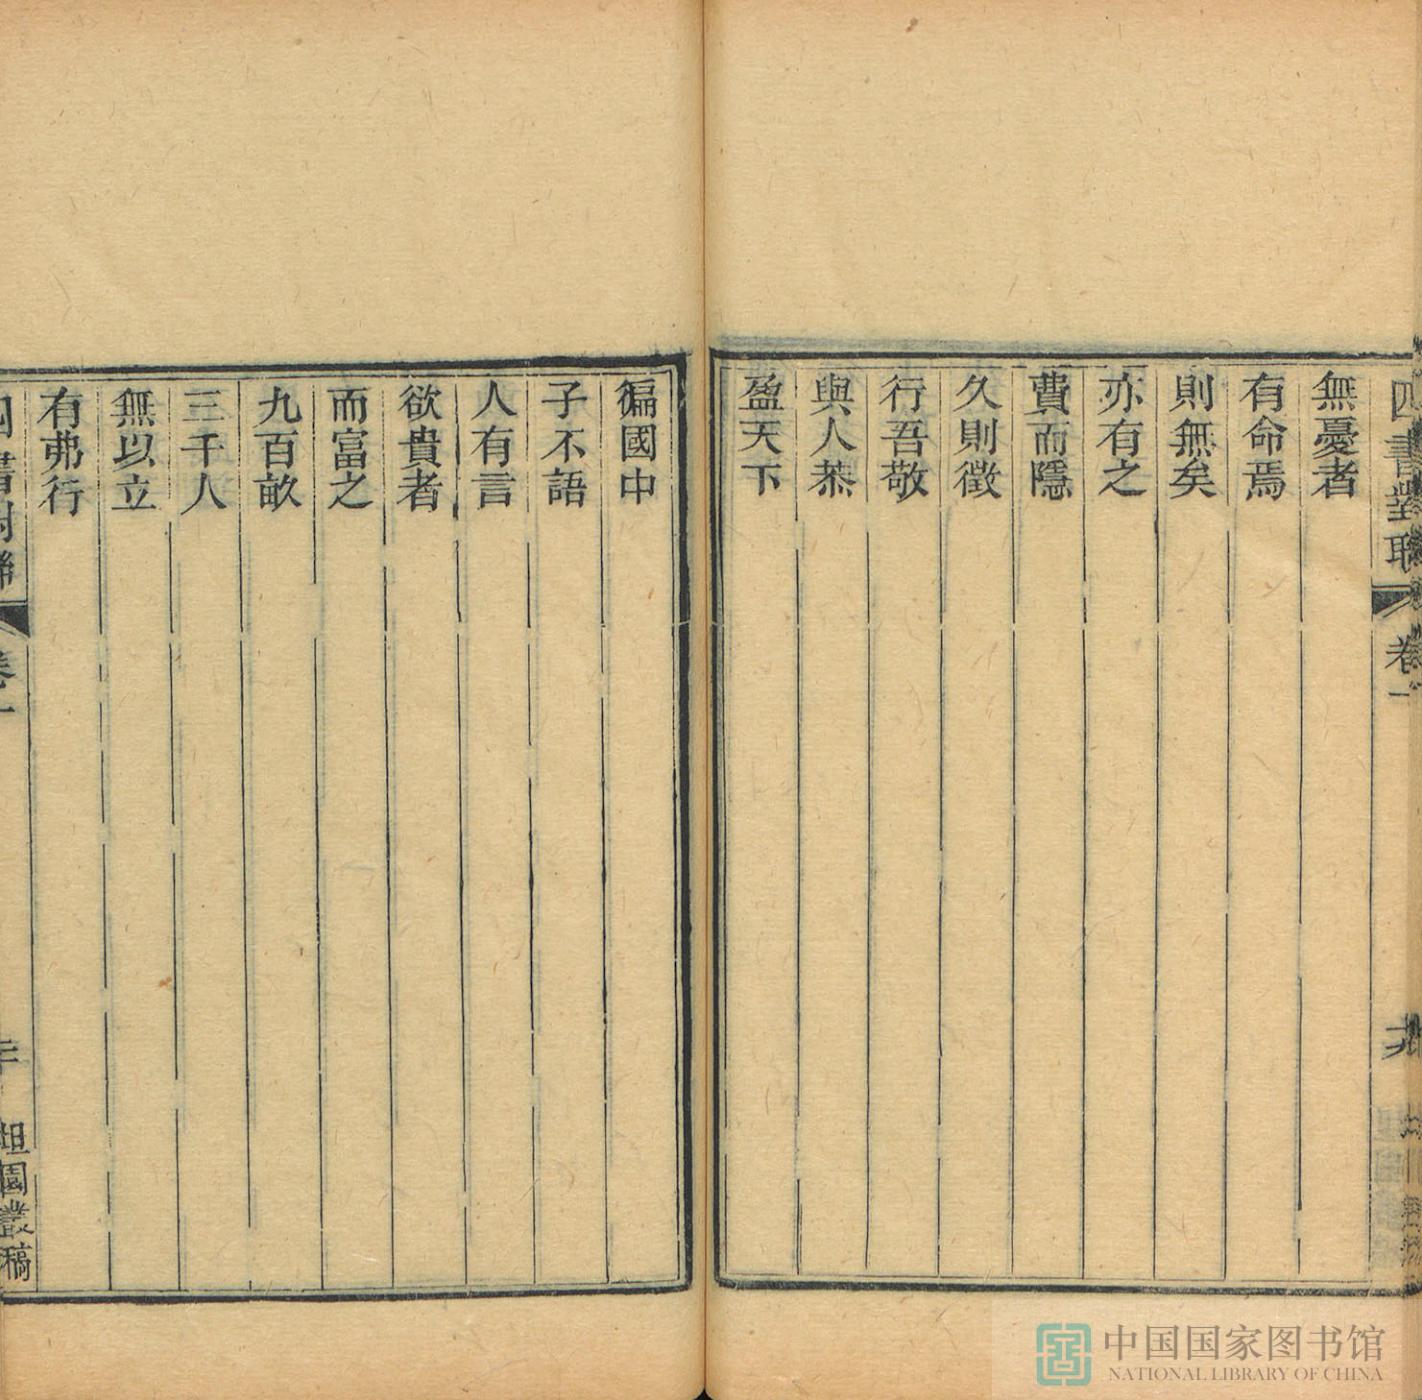 四書對聯
卷一
無憂者
有命焉
則無矣
亦有之
費而隱
久則徵
行吾敬
與人恭
盈天下
徧國中
子不語
人有言
欲貴者
而富之
九百畝
三千人
無以立
有弗行
四書對聯
卷一
坦園叢稿
中国国家图书馆
NATIONAL LIBRARY OF CHINA